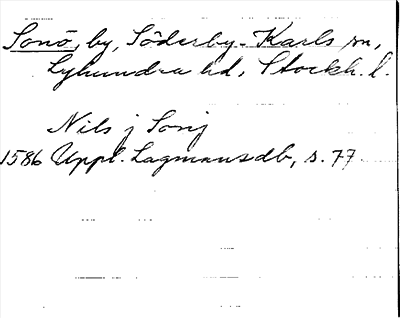 Sonö, by, Söderby-Karls sn,
Lyhundra hd, Stockh. l.
Nils j Sonij
1586 Uppl. Lagmansdb, s. 77